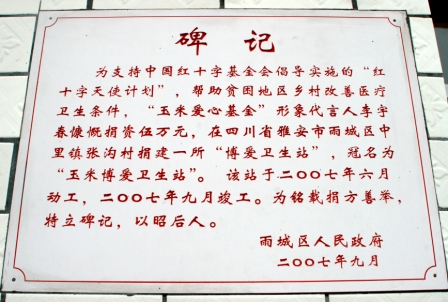 碑记
为支持中国红十字基金会倡导实施的“红
十字天使计划”，帮助贫困地区乡村改善医疗
卫生条件，“玉米爱心基金”形象代言人李宇
春慷慨捐资伍万元，在四川省雅安市雨城区中
里镇张沟村捐建一所“博爱卫生站”，冠名为
“玉米博爱卫生站”。该站于二〇〇七年六月
动工，二〇〇七年九月竣工。为铭载捐方善举，
特立碑记，以昭后人。
雨城区人民政府
二〇〇七年九月